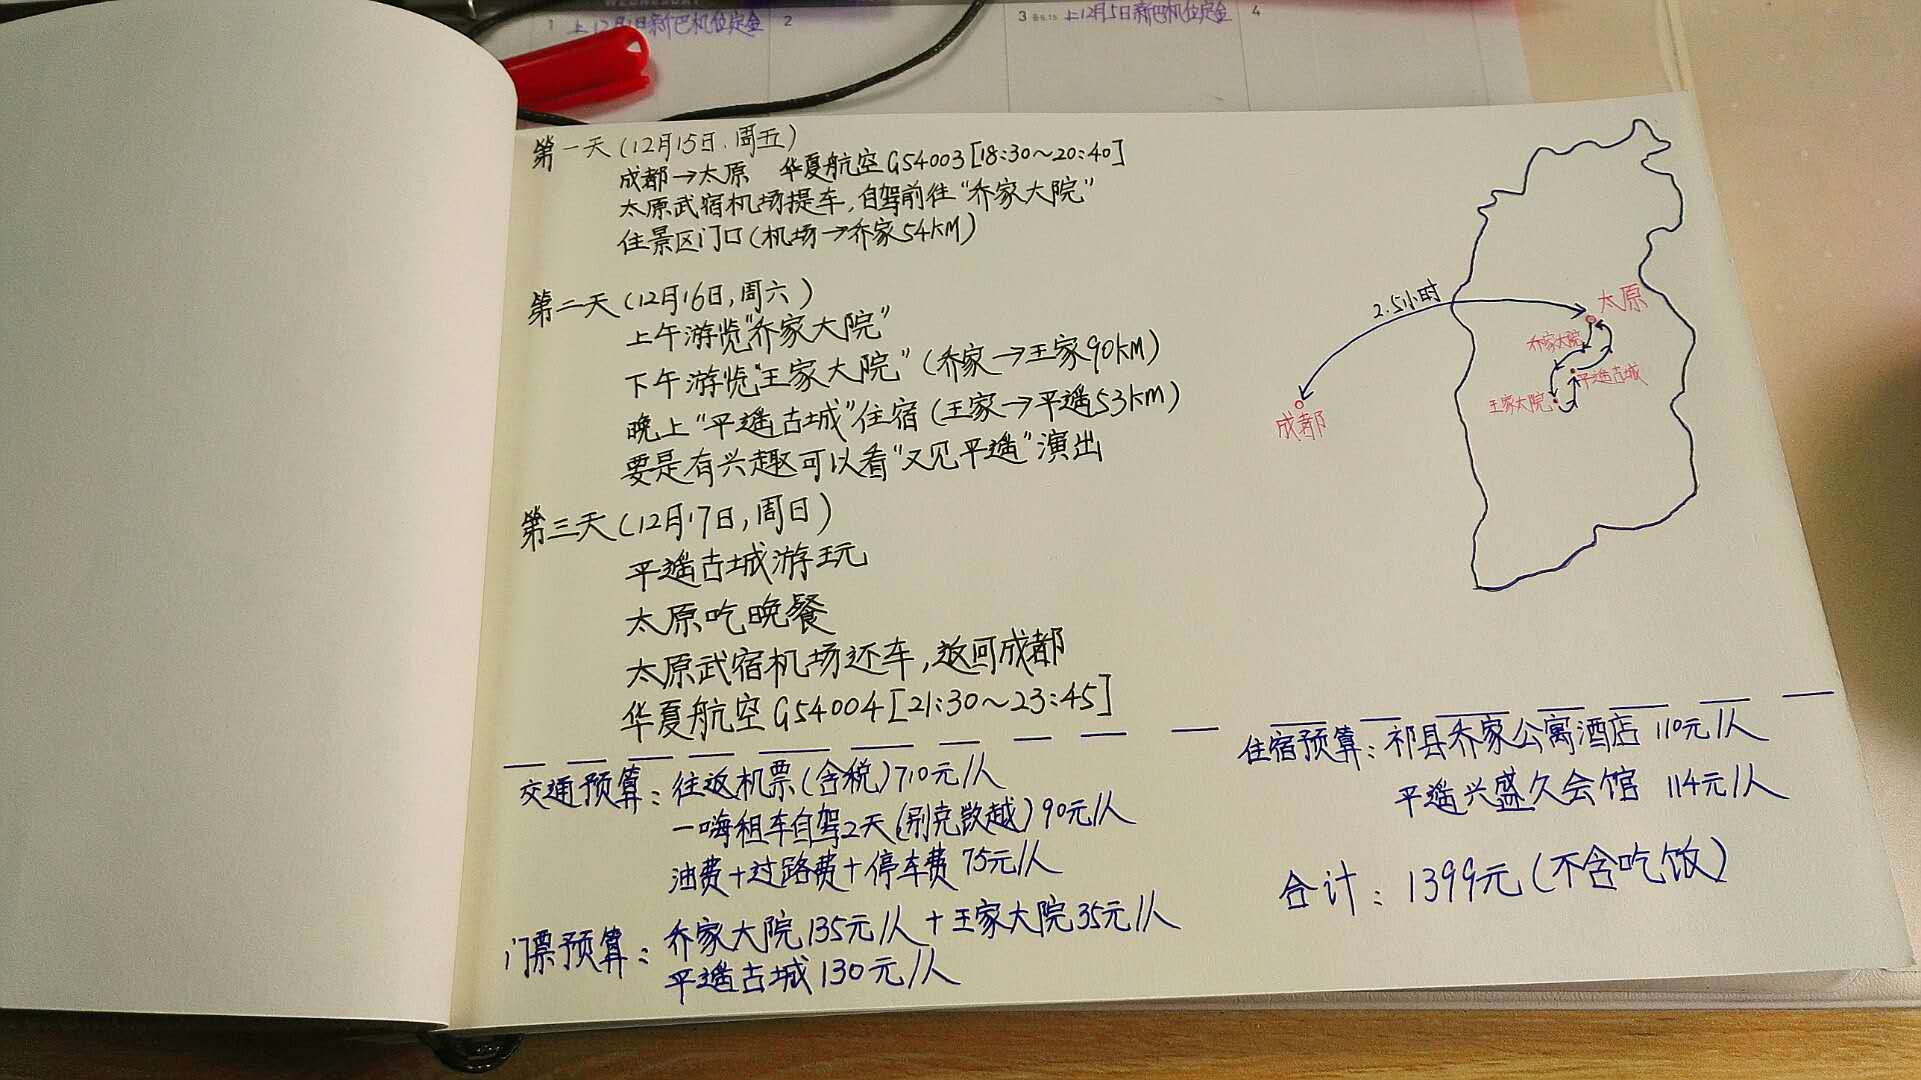 WEDNESDAY
1 上12月1日新巴机位定金
2
3 上12月5日新巴机位定金
4
第一天(12月15日,周五)
成都→太原 华夏航空G54003[18:30~20:40]
太原武宿机场提车,自驾前往“乔家大院”
住景区门口(机场→乔家54KM)
第二天(12月16日,周六)
上午游览“乔家大院”
下午游览“王家大院”(乔家→王家90KM)
晚上“平遥古城”住宿(王家→平遥53KM)
要是有兴趣可以看“又见平遥”演出
第三天(12月17日,周日)
平遥古城游玩
太原吃晚餐
太原武宿机场还车,返回成都
华夏航空G54004[21:30~23:45]
2.5小时
太原
乔家大院
平遥古城
王家大院
成都
交通预算:往返机票(含税)710元/人
一嗨租车自驾2天(别克凯越)90元/人
油费+过路费+停车费75元/人
门票预算:乔家大院135元/人+王家大院35元/人
平遥古城130元/人
住宿预算:祁县乔家公寓酒店 110元/人
平遥兴盛久会馆 114元/人
合计:1399元(不含吃饭)